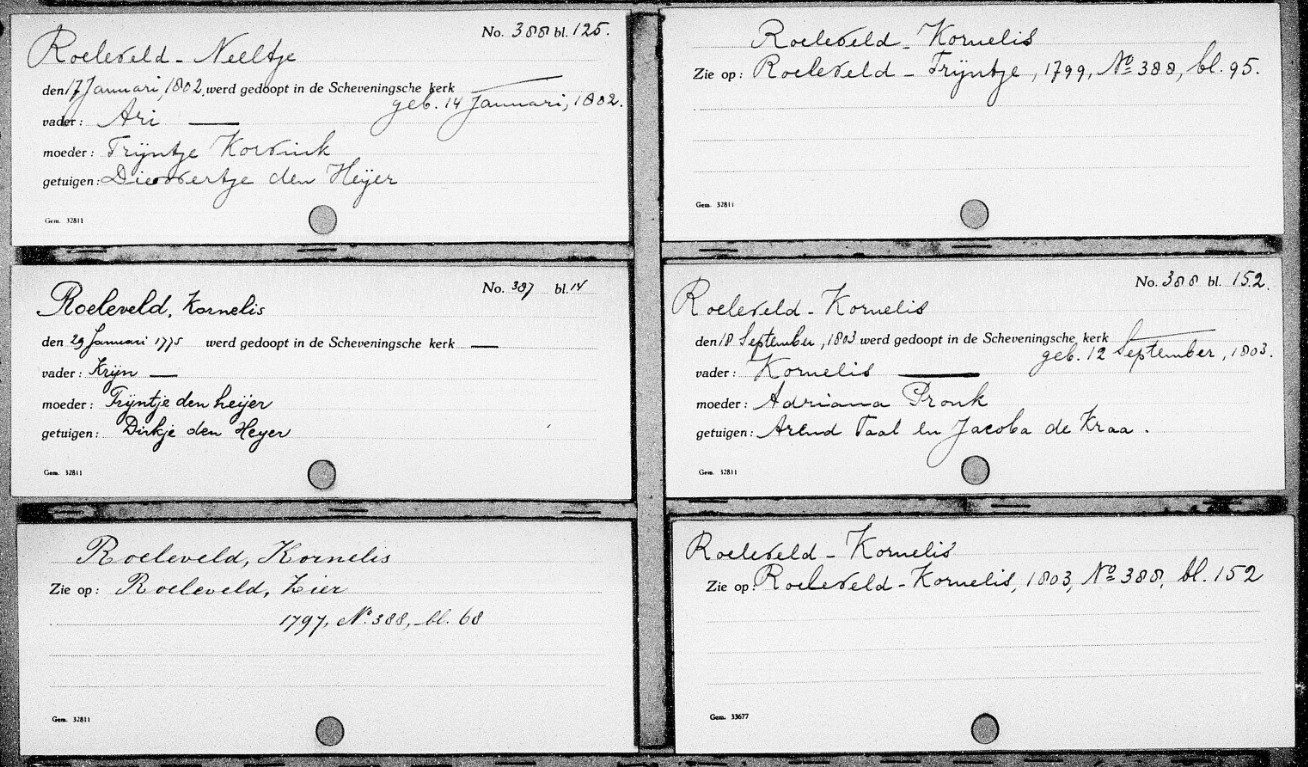 No. 388 bl. 125.
Roeleveld - Neeltje
den 17 Januari, 1802, werd gedoopt in de Scheveningsche kerk
geb. 14 Januari, 1802.
vader: Ari —
moeder: Trijntje Korving
getuigen: Dieuwertje den Heijer
Gem. 32811
Roeleveld - Kornelis
Zie op: Roeleveld - Trijntje, 1799, No 388, bl. 95.
Gem. 32811
No. 387 bl. 14
Roeleveld, Kornelis
den 29 Januari 1775 werd gedoopt in de Scheveningsche kerk —
vader: Krijn —
moeder: Trijntje den heijer
getuigen: Dirkje den Heyer
Gem. 32811
No. 388 bl. 152.
Roeleveld - Kornelis
den 18 September, 1803 werd gedoopt in de Scheveningsche kerk
geb. 12 September, 1803.
vader: Kornelis —
moeder: Adriana Pronk
getuigen: Arend Taal en Jacoba de Kraa.
Gem. 32811
Roeleveld, Kornelis
Zie op: Roeleveld, Zier
1797, No. 388, bl. 68
Gem. 32811
Roeleveld - Kornelis
Zie op: Roeleveld - Kornelis, 1803, No 388, bl. 152
Gem. 33677